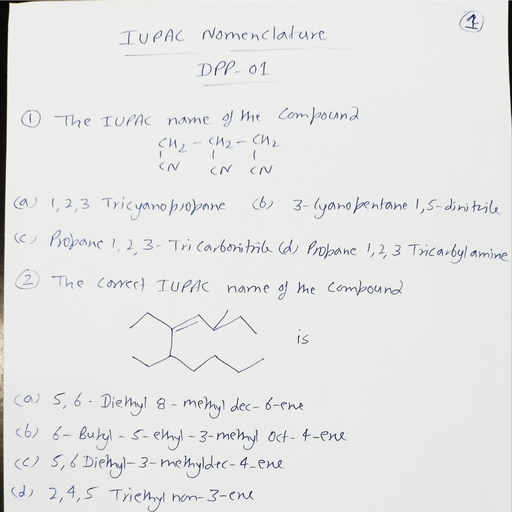 1
IUPAC Nomenclature
DPP-01
① The IUPAC name of the compound
CH2 - CH2 - CH2
CN CN CN
(a) 1,2,3 Tricyanopropane (b) 3-Cyanopentane 1,5-dinitrile
(c) Propane 1,2,3-Tricarbonitrile (d) Propane 1,2,3 Tricarbylamine
② The correct IUPAC name of the compound
is
(a) 5,6-Diethyl 8-methyl dec-6-ene
(b) 6-Butyl-5-ethyl-3-methyl Oct-4-ene
(c) 5,6 Diethyl-3-methyldec-4-ene
(d) 2,4,5 Triethyl non-3-ene